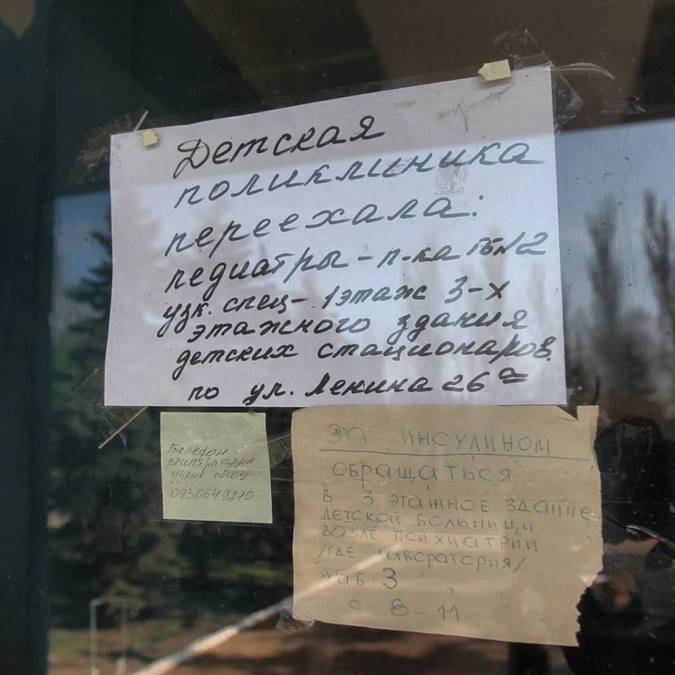 Детская
поликлиника
переехала:
педиатры - п-ка ГБ №2
узк. спец- 1 этаж 3-х
этажного здания
детских стационаров
по ул. Ленина 26 а
Телефон
регистратуры
узких спец
0930649210
ЗА ИНСУЛИНОМ
ОБРАЩАТЬСЯ
В 3 ЭТАЖНОЕ ЗДАНИЕ
ДЕТСКОЙ БОЛЬНИЦЫ
ВОЗЛЕ ПСИХИАТРИИ
/ГДЕ ЛАБОРАТОРИЯ/
КАБ. 3
С 8-11